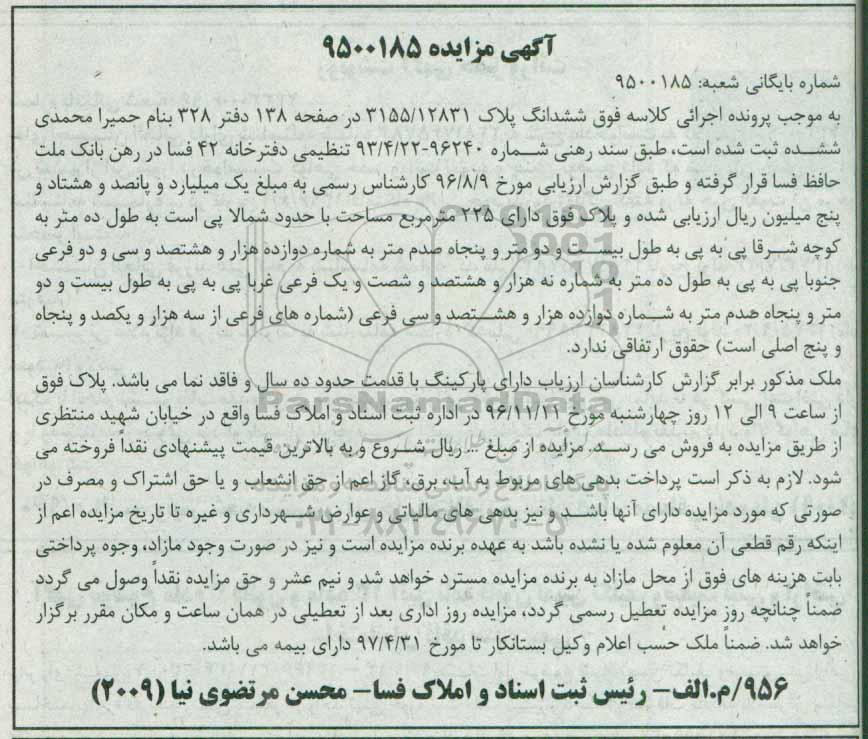 آگهی مزایده ۹۵۰۰۱۸۵
شماره بایگانی شعبه: ۹۵۰۰۱۸۵
به موجب پرونده اجرائی کلاسه فوق ششدانگ پلاک ۳۱۵۵/۱۲۸۳۱ در صفحه ۱۳۸ دفتر ۳۲۸ بنام حمیرا محمدی
ششده ثبت شده است، طبق سند رهنی شماره ۹۶۲۴۰-۹۳/۴/۲۲ تنظیمی دفترخانه ۴۲ فسا در رهن بانک ملت
حافظ فسا قرار گرفته و طبق گزارش ارزیابی مورخ ۹۶/۸/۹ کارشناس رسمی به مبلغ یک میلیارد و پانصد و هشتاد و
پنج میلیون ریال ارزیابی شده و پلاک فوق دارای ۲۲۵ مترمربع مساحت با حدود شمالا پی است به طول ده متر به
کوچه شرقا پی به پی به طول بیست و دو متر و پنجاه صدم متر به شماره دوازده هزار و هشتصد و سی و دو فرعی
جنوبا پی به پی به طول ده متر به شماره نه هزار و هشتصد و شصت و یک فرعی غربا پی به پی به طول بیست و دو
متر و پنجاه صدم متر به شماره دوازده هزار و هشتصد و سی فرعی (شماره های فرعی از سه هزار و یکصد و پنجاه
و پنج اصلی است) حقوق ارتفاقی ندارد.
ملک مذکور برابر گزارش کارشناسان ارزیاب دارای پارکینگ با قدمت حدود ده سال و فاقد نما می باشد. پلاک فوق
از ساعت ۹ الی ۱۲ روز چهارشنبه مورخ ۹۶/۱۱/۱۱ در اداره ثبت اسناد و املاک فسا واقع در خیابان شهید منتظری
از طریق مزایده به فروش می رسد. مزایده از مبلغ ... ریال شروع و به بالاترین قیمت پیشنهادی نقداً فروخته می
شود. لازم به ذکر است پرداخت بدهی های مربوط به آب، برق، گاز اعم از حق انشعاب و یا حق اشتراک و مصرف در
صورتی که مورد مزایده دارای آنها باشد و نیز بدهی های مالیاتی و عوارض شهرداری و غیره تا تاریخ مزایده اعم از
اینکه رقم قطعی آن معلوم شده یا نشده باشد به عهده برنده مزایده است و نیز در صورت وجود مازاد، وجوه پرداختی
بابت هزینه های فوق از محل مازاد به برنده مزایده مسترد خواهد شد و نیم عشر و حق مزایده نقداً وصول می گردد
ضمناً چنانچه روز مزایده تعطیل رسمی گردد، مزایده روز اداری بعد از تعطیلی در همان ساعت و مکان مقرر برگزار
خواهد شد. ضمناً ملک حسب اعلام وکیل بستانکار تا مورخ ۹۷/۴/۳۱ دارای بیمه می باشد.
۹۵۶/م.الف- رئیس ثبت اسناد و املاک فسا- محسن مرتضوی نیا (۲۰۰۹)
ParsNamadData
۰۲۱-۸۸۳۴۹۶۷۰-۵